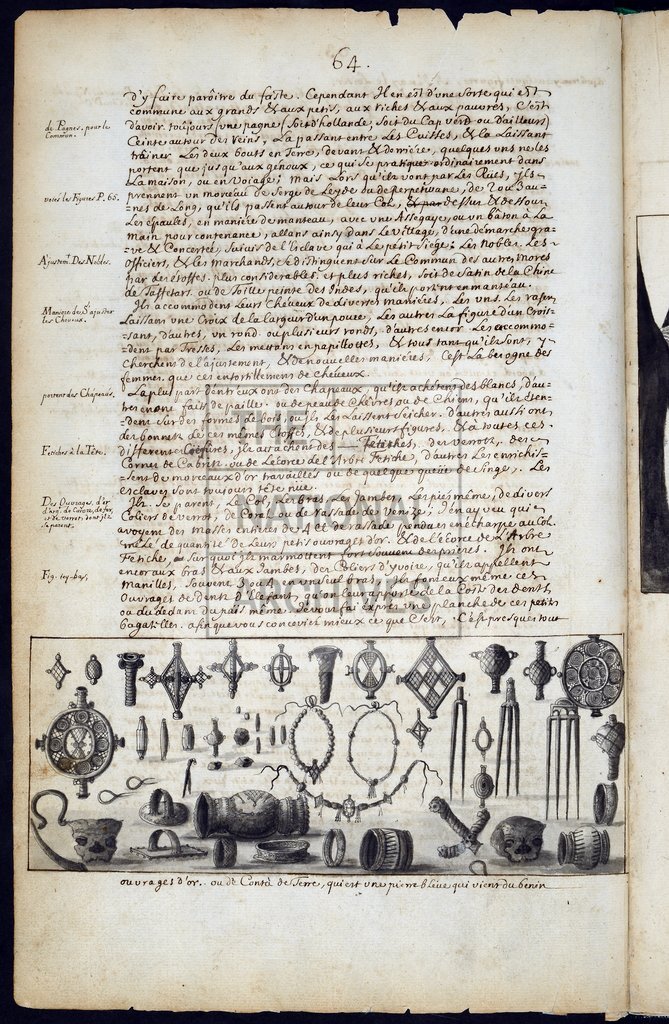 64.
d'y faire paroître du faste. Cependant Il en est d'une sorte qui est
commune aux grands & aux petis, aux riches & aux pauvres, C'est
de Pagnes, pour le
Commun.
d'avoir toujours une pagne (soit d'hollande, soit du Cap Verd ou d'ailleurs)
Ceinte autour des Reins, La passant entre Les Cuisses, & La Laissant
trainer Les deux bouts en Terre, devant & derriere, quelques uns ne les
portent que jusqu'aux genoux, ce qui se pratique ordinairement dans
La maison, ou en voiage; mais Lors qu'ils vont par Les Rües, Ils
voiés les Figures P. 65.
prennent un morceau de Serge de Leyde ou de Perpetuane, de 2 ou 3 au-
=nes de Long, qu'ils passent autour de leur Col, & par dessus & dessous
Les épaules, en maniere de manteau, avec une Assegaye, ou un baton à La
main pour contenance, allans ainsy dans Le village, d'une démarche gra-
=ve & Concertée, Suivis de l'Esclave qui a Le petit Siege; Les Nobles, Les
Ajustemt. Des Nobles.
officiers, & Les marchands, se distinguent sur Le Commun des autres mores
par des étoffes plus considerables, et plus riches, Soit de Satin de La Chine
de Taffetart, ou de Toille peinte des Indes, qu'ils portent en manteau.
Maniere de s'ajuster
les Cheveux.
Ils accommodent Leurs Cheveux de diverses manieres, Les uns Les rasent
Laissans une Croix de la Largeur d'un pouce, Les autres La figure d'un Crois-
=sant, d'autres, un rond ou plusieurs ronds, d'autres encor Les accommo-
=dent par Tresses, Les mettans en papillottes, & tous tant qu'ils sont, y
Cherchent de l'ajustement, & de nouvelles manieres. C'est La besogne des
femmes que ces entortillemens de cheveux.
portent des Chapeaux.
La plus part d'entr'eux ont des Chapeaux, qu'ils achetent des blancs, d'au-
tres en ont fait de paille, ou de peau de Chévres ou de Chiens, qu'ils éten-
=dent sur des formes de bois, ou Ils Les Laissent Seicher. d'autres aussi ont
des bonnets de ces mêmes étoffes, & de plusieurs figures, & à toutes ces
Fetiches à la Tête.
differentes Coëfures, ils attachent des Fetiches, des verrots, des
Cornes de Cabrits, ou de L'écorce de l'Arbre Fetiche, d'autres Les enrichis-
=sent de morceaux d'or travaillés ou de quelque queüe de Singe. Les
esclaves sont toujours tête nüe.
Des Ouvrages, d'or
Ils se parent, Le Col, Les bras, Les Jambes, Les pies même, de divers
Coliers de verrot, de Corail, ou de rassade de Venize; J'en ay veu qui
avoyent des masses entieres de rassade pendues en écharpe au Col,
mêlé de quantité de Leurs petits ouvrages d'or, & de l'écorce de L'Arbre
Fetiche, sur quoi Ils marmottent fort souvent des prieres. Ils ont
Fig. icy-bas.
encor aux bras & aux Jambes, des Coliers d'yvoire, qu'ils appellent
manilles, Souvent 3 ou 4 en un seul bras, Ils font eux même ces
Ouvrages de dents d'Elefant, qu'on leur apporte de La Coste des dents,
ou du dedans du païs même. Je vous fai exprés une planche de ces petits
bagatelles, afin que vous conceviez mieux ce que C'est, C'est presques tout
THE
NATIONAL
ARCHIVES
ouvrages d'or. ou de Conta de Terre, qui est une pierre bleüe qui vient du benin